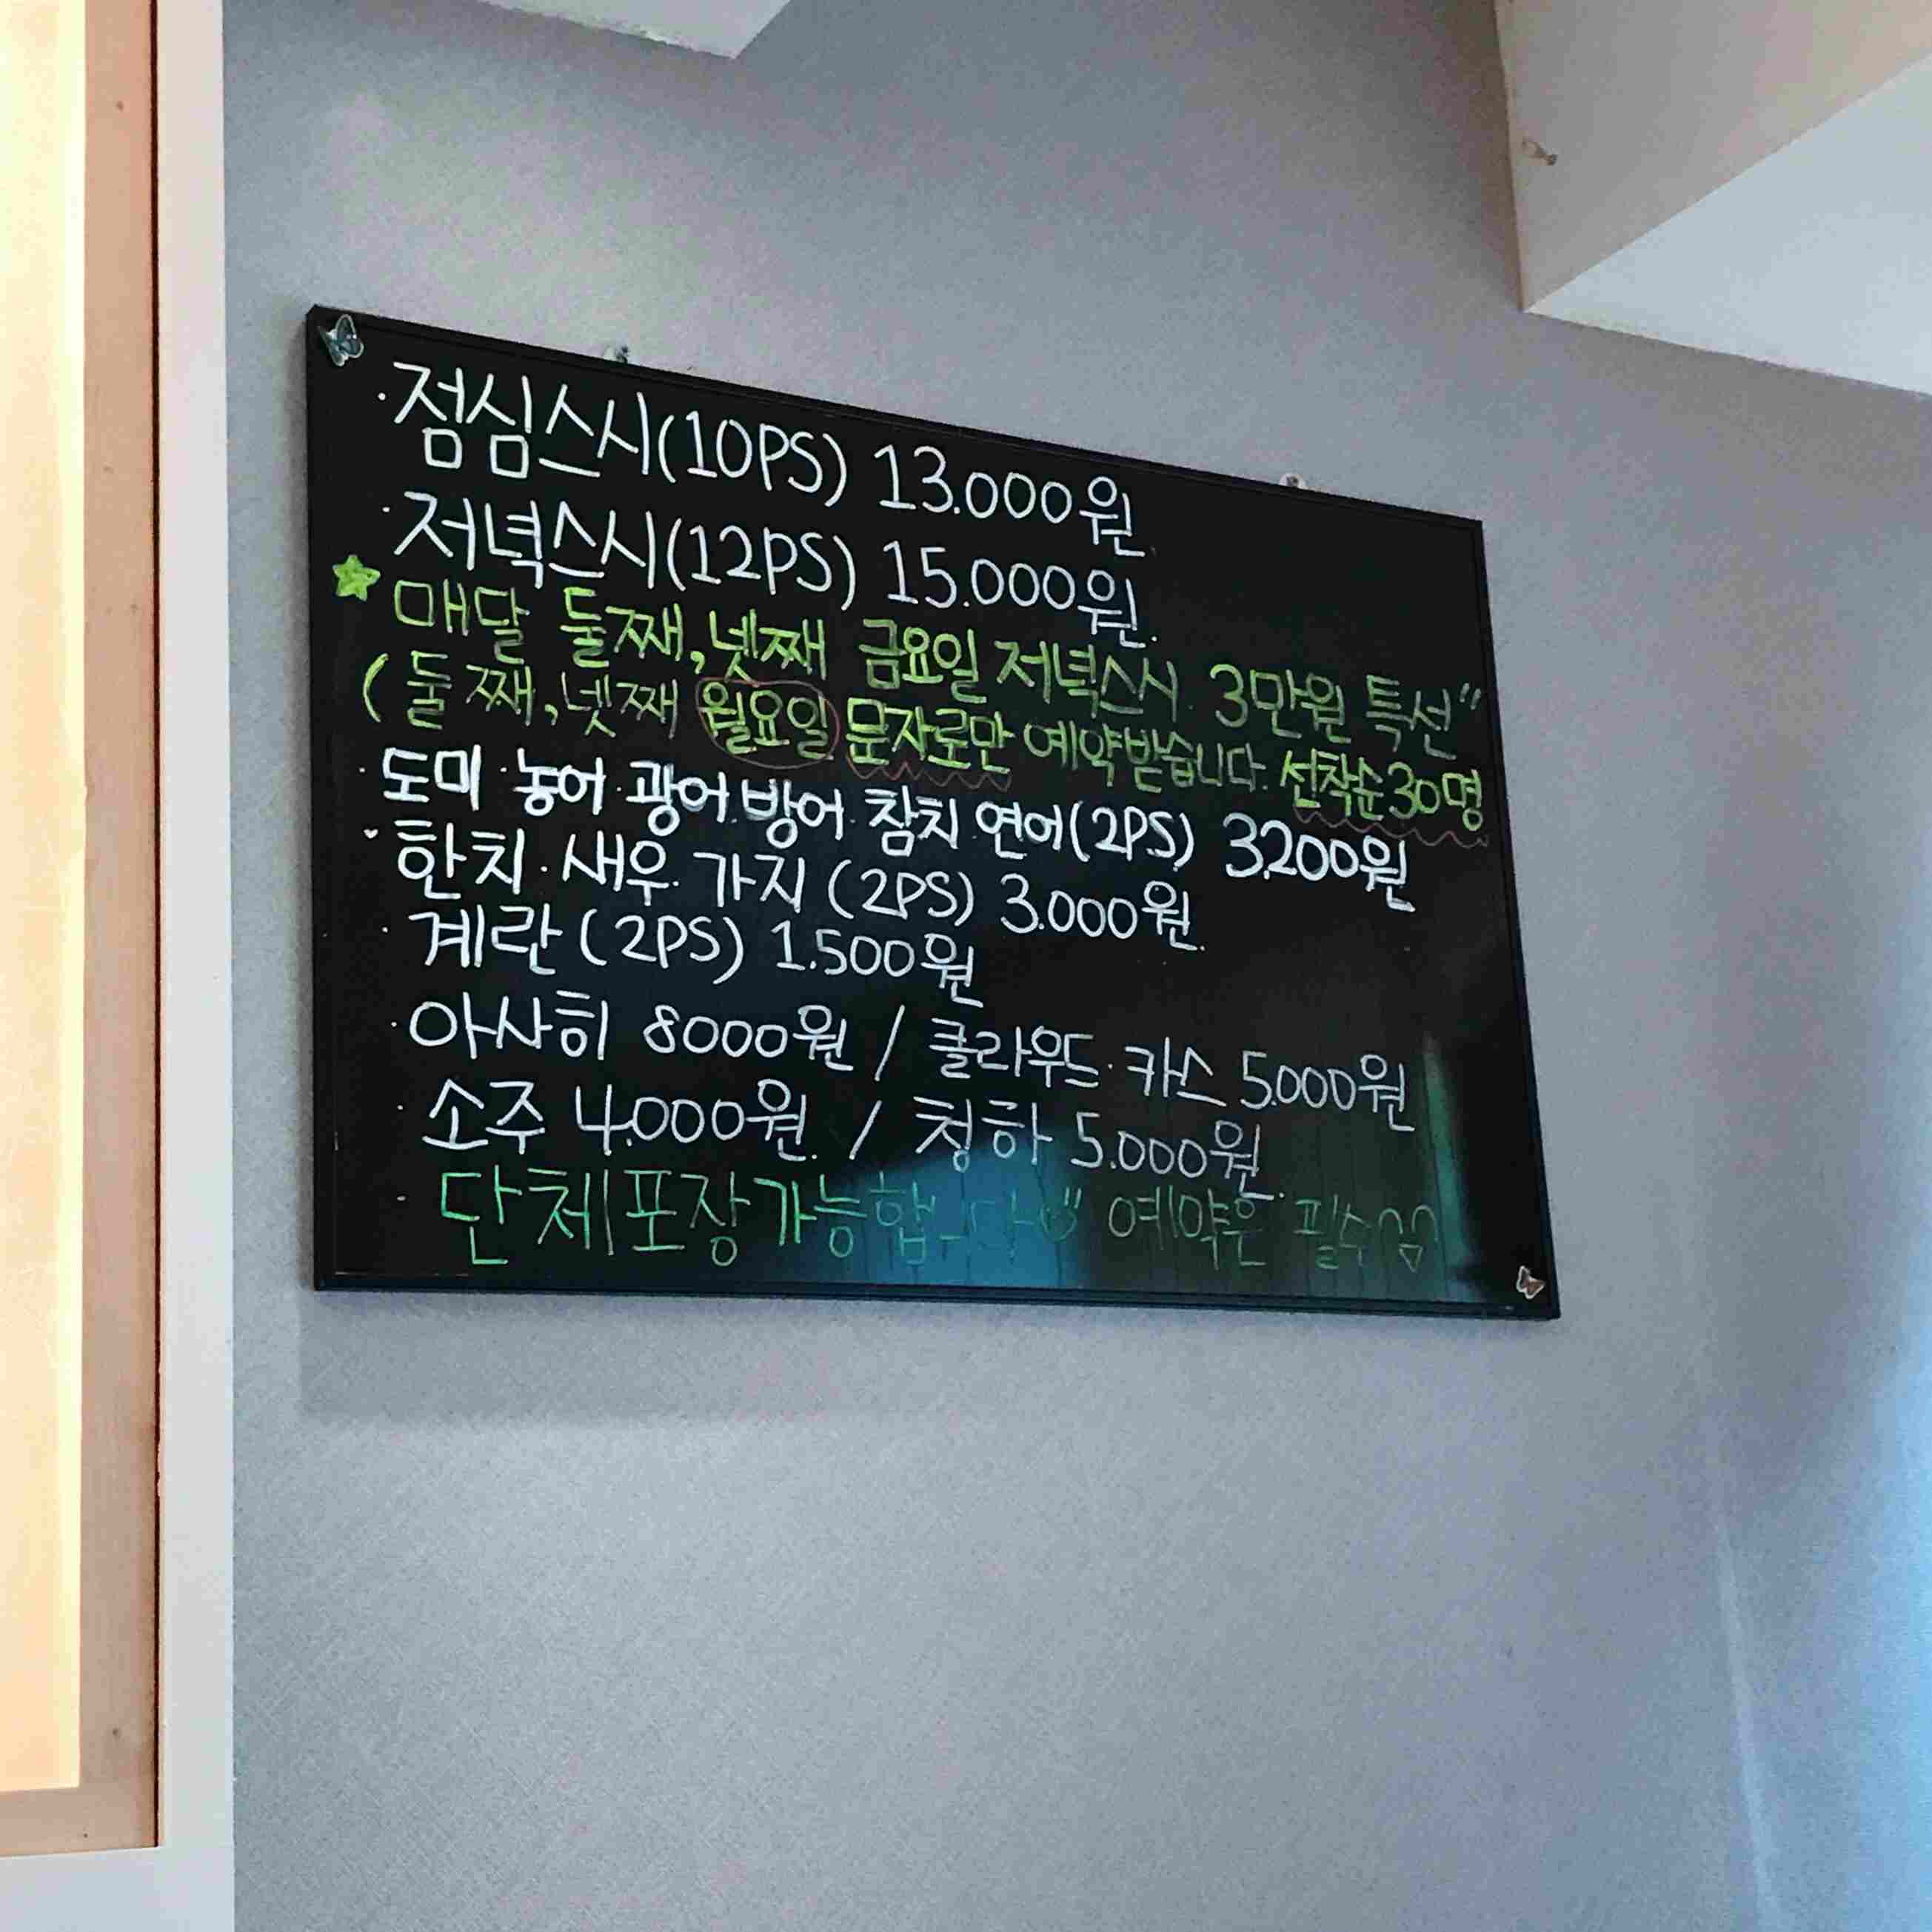 · 점심스시(10PS) 13.000원.
· 저녁스시(12PS) 15.000원.
★ 매달 둘째, 넷째 금요일 저녁스시 3만원 특선"
( 둘째, 넷째 월요일 문자로만 예약받습니다. 선착순30명
· 도미·농어·광어.방어·참치·연어(2P.S) 3.200원
· 한치·새우·가지 (2PS) 3.000원.
· 계란 (2PS) 1.500원
· 아사히 8000원 / 클라우드·카스 5.000원
· 소주 4.000원. / 청하 5.000원.
· 단체포장가능합니다" 예약은 필수^^